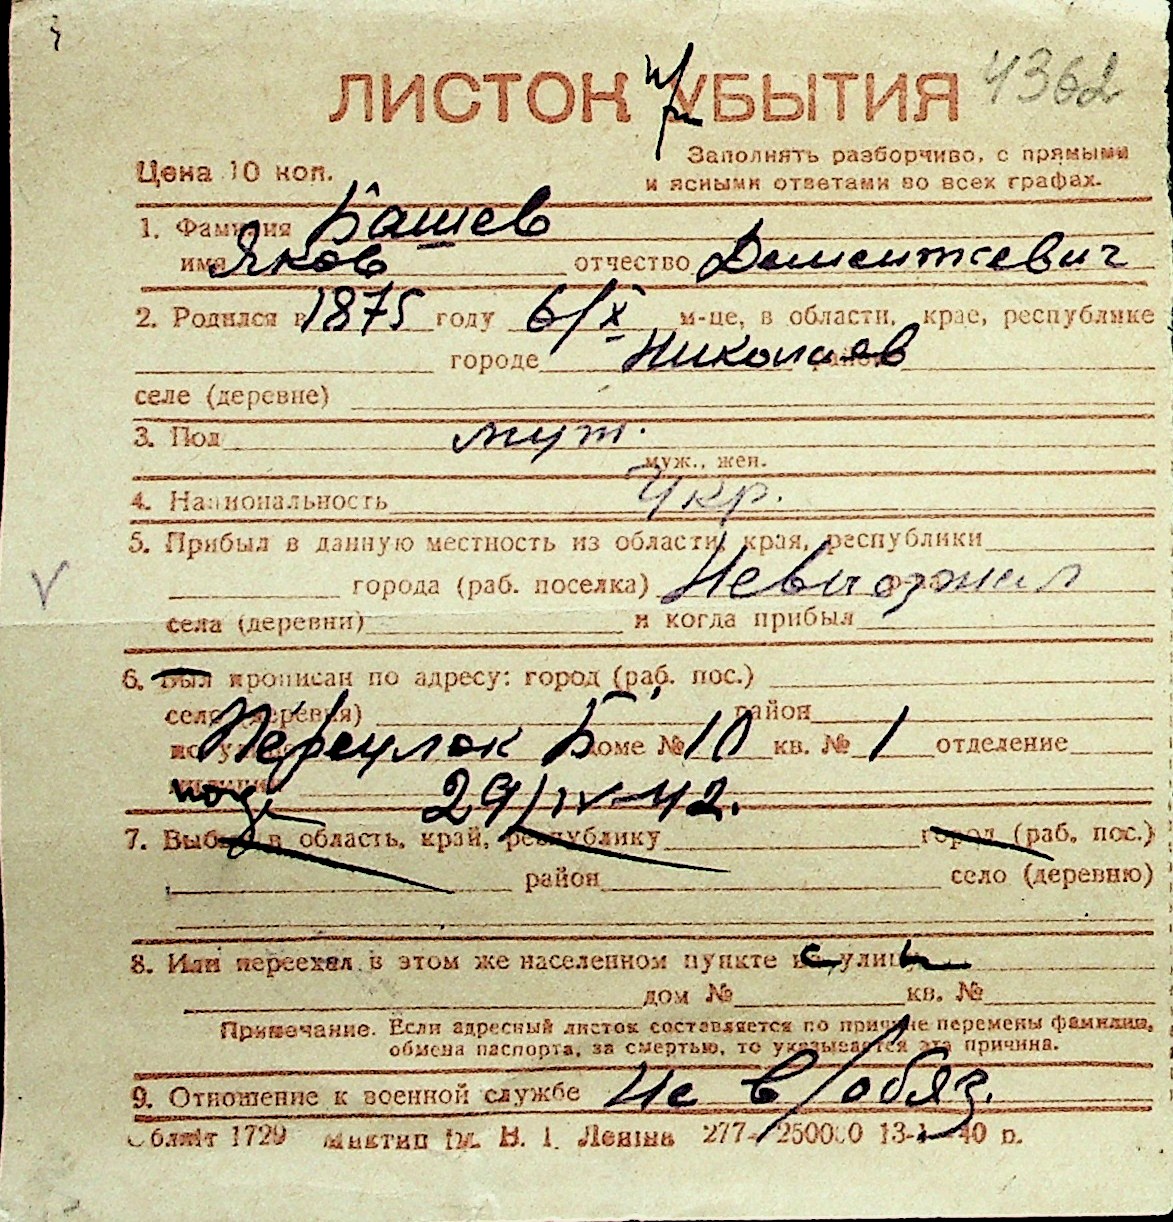 ЛИСТОК УБЫТИЯ 4362
Цена 10 коп.
Заполнять разборчиво, с прямыми
и ясными ответами во всех графах.
1. Фамилия Башев
имя Яков отчество Дементьевич
2. Родился в 1875 году 6/X м-це, в области, крае, республике
городе Николаев
селе (деревне)
3. Пол муж.
муж., жен.
4. Национальность Укр.
5. Прибыл в данную местность из области, края, республики
города (раб. поселка) Невыезжал
села (деревни) и когда прибыл
6. Был прописан по адресу: город (раб. пос.)
село (деревня) район
по улице Переулок Б доме № 10 кв. № 1 отделение
милиции 29/IV-42.
7. Выбыл в область, край, республику город (раб. пос.)
район село (деревню)
8. Или переехал в этом же населенном пункте с улицы
дом № кв. №
Примечание. Если адресный листок составляется по причине перемены фамилии,
обмена паспорта, за смертью, то указывается эта причина.
9. Отношение к военной службе Не в/обяз.
Обллит 1729 им. В. І. Леніна 277 250000 40 р.